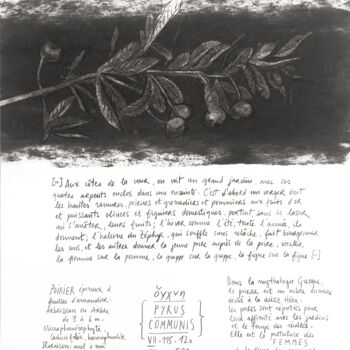 [...] Aux côtés de la cour on voit un grand jardin avec ses
quatre arpents enclos dans une enceinte. C'est d'abord un verger dont
les hautes ramures, poiriers et grenadiers et pommiers aux fruits d'or
et puissants oliviers et figuiers domestiques, portent, sans se lasser
ni s'arrêter, leurs fruits; l'hiver comme l'été, toute l'année, ils
donnent; l'haleine du Zéphyr, qui souffle sans relâche, fait bourgeonner
les uns, et les autres donner la jeune poire auprès de la poire, vieillie,
la pomme sur la pomme, la grappe sur la grappe, la figue sur la figue [...]
POIRIER épineux, à
feuilles d'amandier.
Arbrisseau ou Arbre
de 3 à 6 m.
hermaphrodite
Floraison
ὄγχνη
PYRUS
COMMUNIS
VII - 115 - 120
Dans la mythologie Grecque,
le poirier est un arbre
dédié à la déesse Héra.
les poires sont réputées pour
leur affinité avec les jardins
et le temps des
Elle est la protectrice des
FEMMES